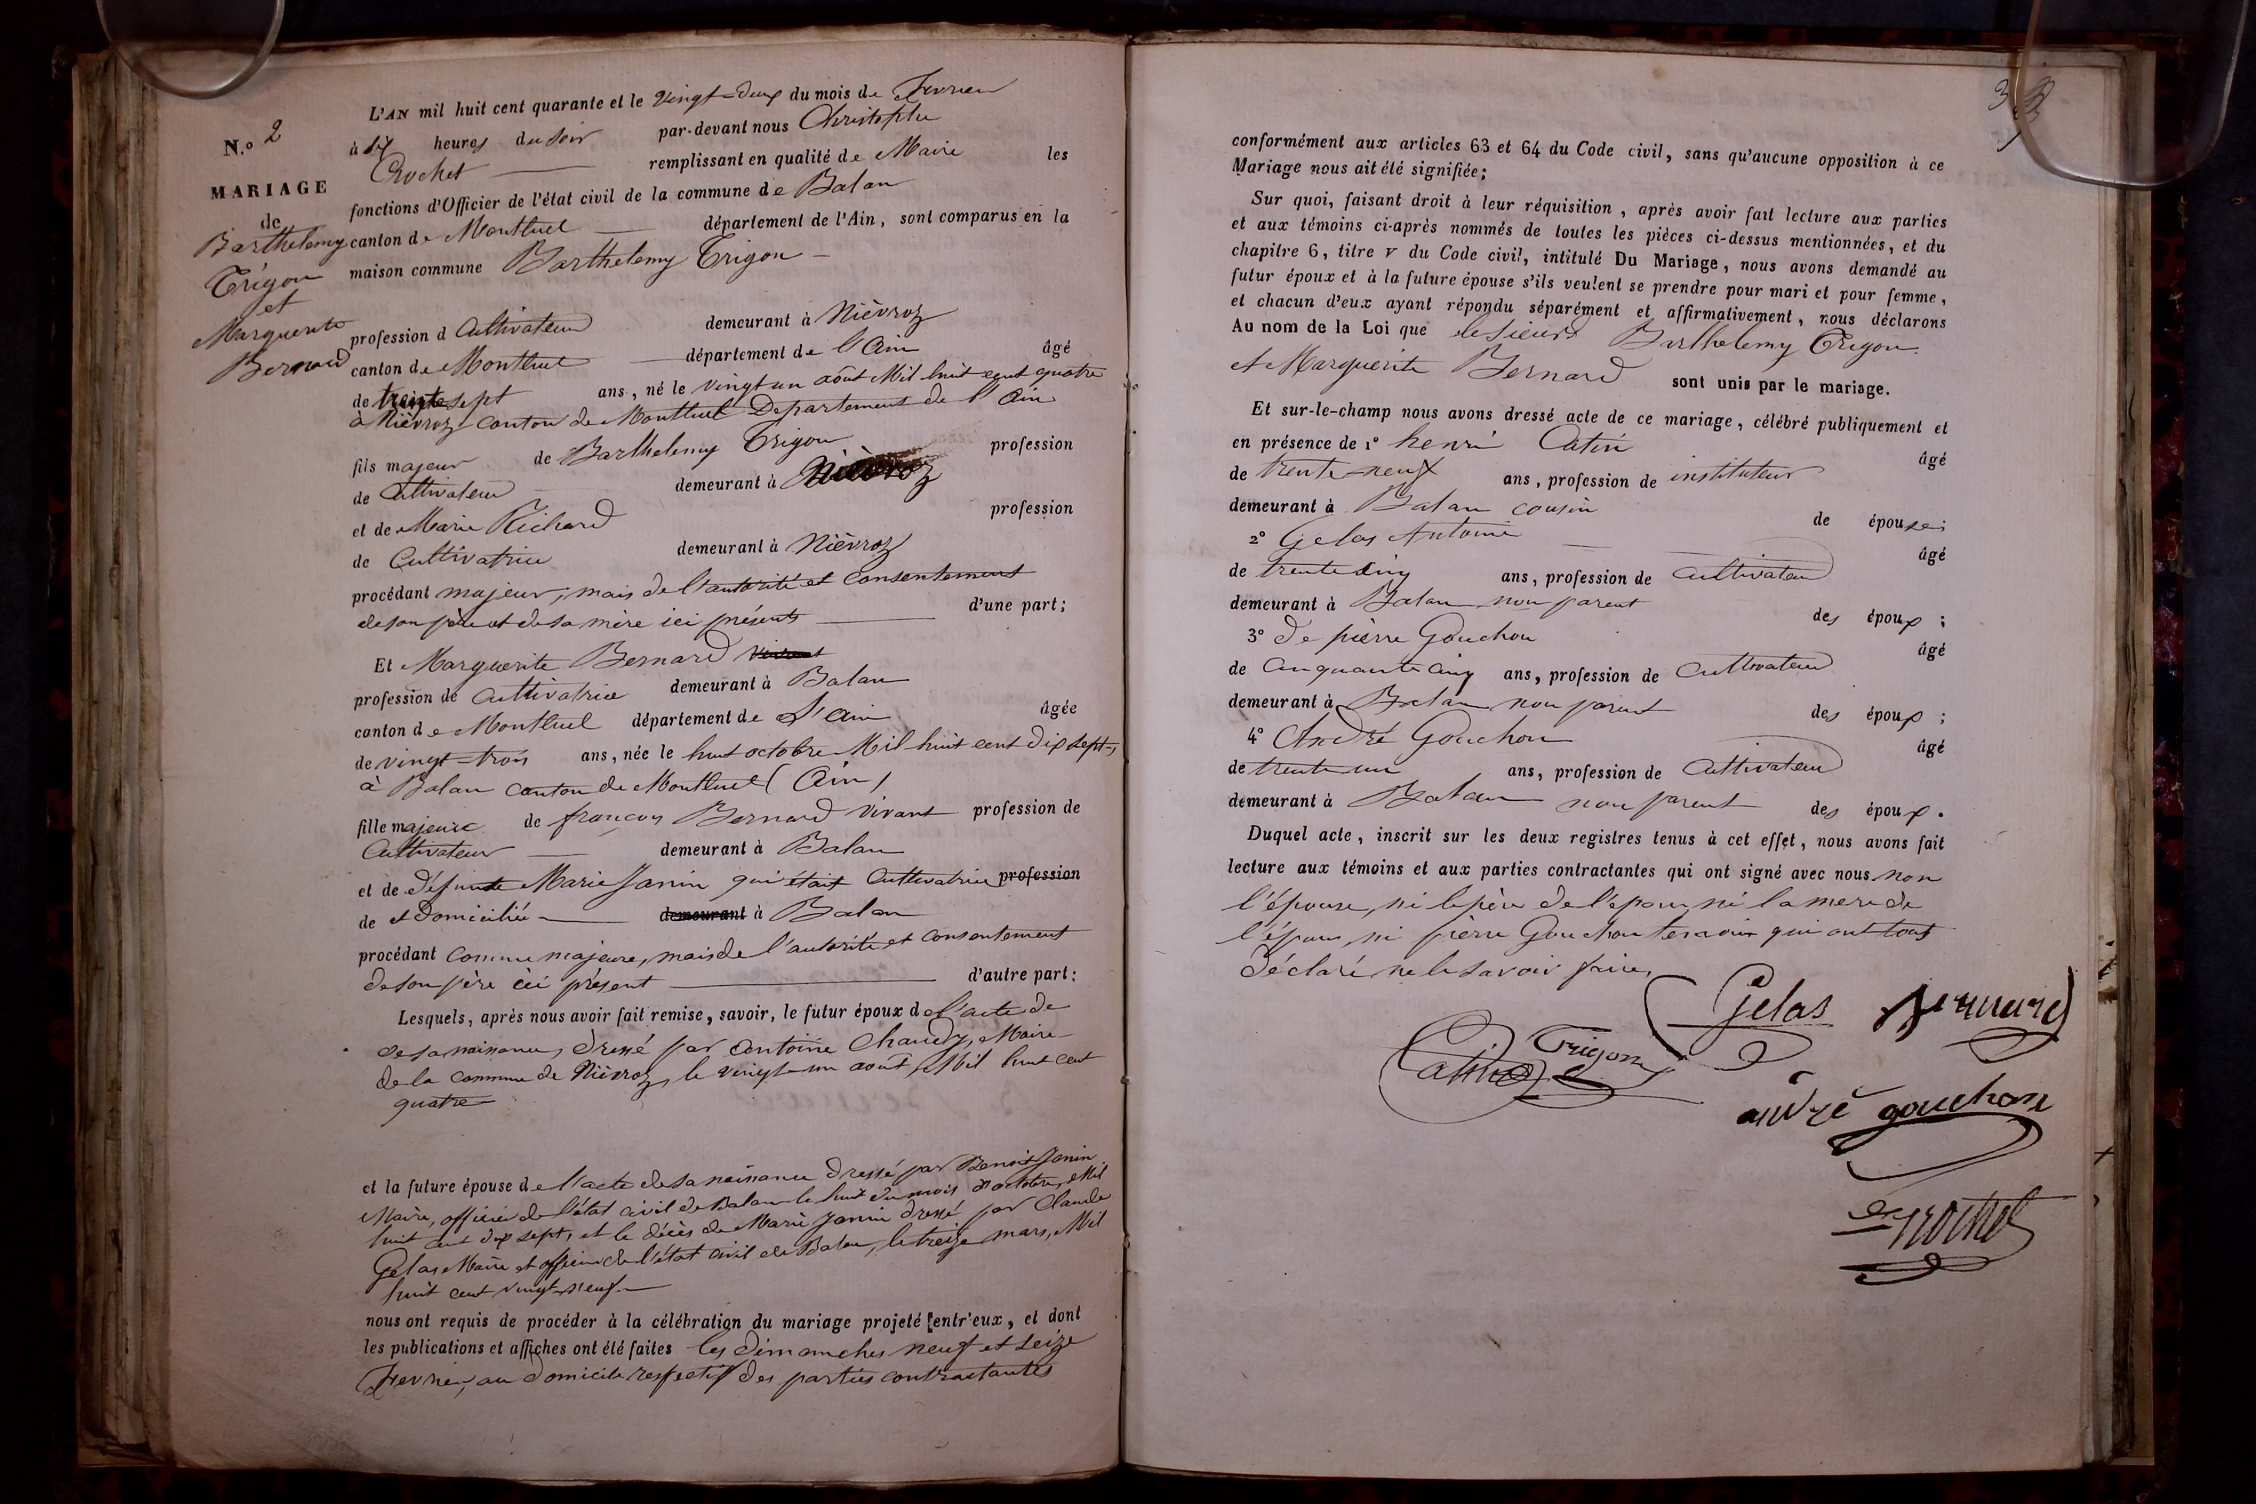 N.o 2
MARIAGE
de
Barthelemy
Trigon
et
Marguerite
Bernard
L'AN mil huit cent quarante et le vingt-deux du mois de Fevrier
à six heures du soir par-devant nous Christophe
Crochet remplissant en qualité de Maire les
fonctions d'Officier de l'état civil de la commune de Balan
canton de Montluel département de l'Ain, sont comparus en la
maison commune Barthelemy Trigon
profession d Cultivateur demeurant à Nièvroz
canton de Montluel département de l'Ain âgé
de trente sept ans, né le vingt un août Mil huit cent quatre
à Nièvroz canton de Montluel Departement de l'Ain
fils majeur de Barthelemy Trigon profession
de Cultivateur demeurant à Nièvroz
et de Marie Richard profession
de Cultivatrice demeurant à Nièvroz
procédant majeur, mais de l'autorité et consentement
de son père et de sa mère ici présents d'une part;
Et Marguerite Bernard
profession de Cultivatrice demeurant à Balan
canton de Montluel département de L'Ain âgée
de vingt-trois ans, née le huit octobre Mil huit cent dix sept,
à Balan canton de Montluel (Ain)
fille majeure de françois Bernard vivant profession de
Cultivateur demeurant à Balan
et de défunte Marie Janin qui était Cultivatrice profession
de et Domiciliée demeurant à Balan
procédant comme majeure, mais de l'autorité et consentement
de son père ici présent d'autre part:
Lesquels, après nous avoir fait remise, savoir, le futur époux de l'acte de
de sa naissance, dressé par Antoine Chaudy, Maire
de la commune de Nièvroz, le vingt-un août, Mil huit cent
quatre
et la future épouse de l'acte de sa naissance dressé par Benoit Janin
Maire, officier de l'état civil de Balan le huit du mois d'octobre, Mil
huit cent dix sept, et le décès de Marie Janin dressé par Claude
Gelas Maire et officier de l'état civil de Balan, le treize mars, Mil
huit cent vingt-neuf
nous ont requis de procéder à la célébration du mariage projeté entr'eux, et dont
les publications et affiches ont été faites les dimanches neuf et seize
Fevrier, au domicile respectif des parties contractantes
3
conformément aux articles 63 et 64 du Code civil, sans qu'aucune opposition à ce
Mariage nous ait été signifiée;
Sur quoi, faisant droit à leur réquisition, après avoir fait lecture aux parties
et aux témoins ci-après nommés de toutes les pièces ci-dessus mentionnées, et du
chapitre 6, titre V du Code civil, intitulé Du Mariage, nous avons demandé au
futur époux et à la future épouse s'ils veulent se prendre pour mari et pour femme,
et chacun d'eux ayant répondu séparément et affirmativement, nous déclarons
Au nom de la Loi que le sieur Barthelemy Trigon
et Marguerite Bernard sont unis par le mariage.
Et sur-le-champ nous avons dressé acte de ce mariage, célébré publiquement et
en présence de 1° henri Catin âgé
de trente-neuf ans, profession de instituteur
demeurant à Balan cousin de épouse;
2° Gelas Antoine âgé
de trente cinq ans, profession de Cultivateur
demeurant à Balan non parent des époux;
3° De pierre Gouchon âgé
de Cinquante cinq ans, profession de Cultivateur
demeurant à Balan non parent des époux;
4° André Gouchon âgé
de trente un ans, profession de Cultivateur
demeurant à Balan non parent des époux.
Duquel acte, inscrit sur les deux registres tenus à cet effet, nous avons fait
lecture aux témoins et aux parties contractantes qui ont signé avec nous non
l'épouse, ni le père de l'époux ni la mere de
l'époux, ni pierre Gouchon temoin qui ont tous
déclaré ne le savoir faire,
Gelas Bernard
Catin Trigon
andré gouchon
Crochet